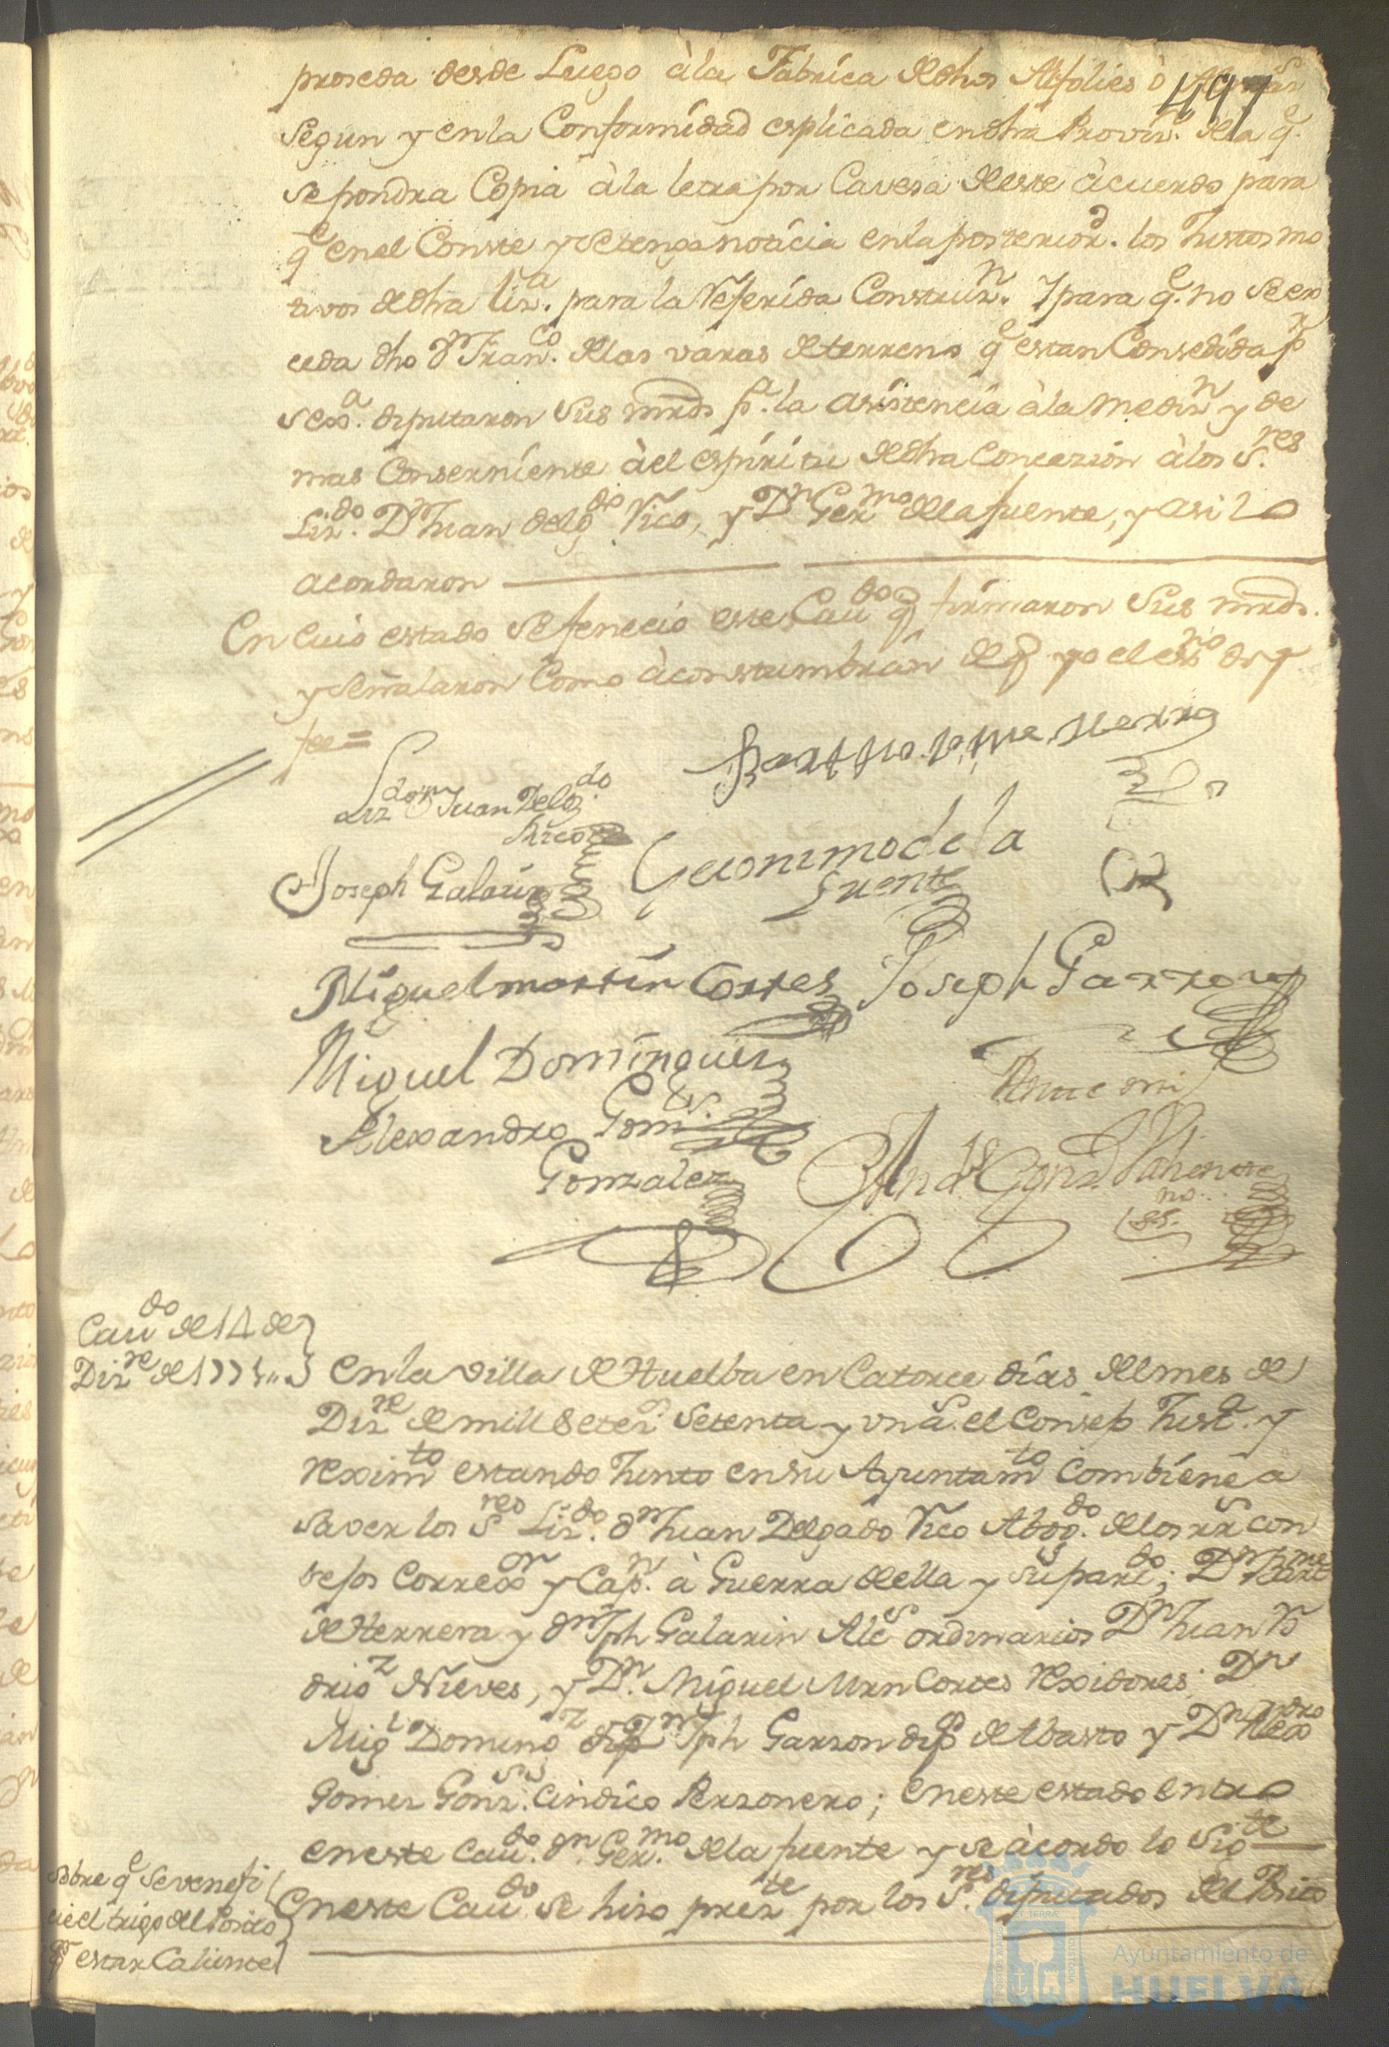 497
proseda desde Luego à la Fabrica de dhos Alfolies ò
Segun y en la Conformidad esplicada en dha Provin.ª de la q.e
se pondra Copia à la letra por Cavesa de este àcuerdo para
q.e en el Conste y se tenga noticia en la posterior.d los Justos mo
tivos de dha liz.a para la Referida Construz.n Y para q.e no se ex
ceda dho d.n Fran.co de las varas de terreno q.e estan Consedida p.r
S Exª. diputaron Sus mrds p.ª la asistencia à la mediz.n y de
mas Conserniente à el espiritu de dha Concazion à los S.res
Liz.do D.n Juan delg.do Rico, y D.n Ger.mo de la fuente, y asi lo
acordaron
En cuio estado se fenecio este Cau.do q.e firmaron Sus mrds.
y señalaron Como àcostumbran de q.e yo el es.no doy
fee=
Liz.do d.n Juan Delg.do
Rico
Bart.me de Herrera
Joseph Galarin
Geronimo de la
fuente
Miguel martin Cortes
Joseph Garzon
Miguel Dominguez
Alexandro Gom.z
Gonzalez
Ante mi
And.s Gonz.
es.no
Cau.do de 14 de
Diz.re de 1771..
En la villa de Huelba en Catorce dias del mes de
Diz.re de mill Setez.s Setenta y un a.s el Consep Just.a y
Reximto estando Junto en su Ayuntamto Combiene a
saver los S.res Liz.do d.n Juan Delgado Rico Abog.do de los rr.s con
sejos Correx.or y Cap.n à Guerra de ella y su partido; D.n Bart.me
de Herrera y d.n Jph Galarin Alc.s ordinarios D.n Juan Ro
drig.z Nieves, y D.n Miguel Mrn Cortes rexidores; D.n
Mig.l Doming.z D.n Jph Garzon dip.s de Abasto y D.n Alex.dro
Gomez Gonz.s Cindico Perzonero; en este estado entro
en este Cau.do d.n Ger.mo de la fuente y se àcordo lo Sig.te
Sobre q.e se venefi
cie el trigo del Posito
p.r estar Caliente
En este Cau.do se hizo prez.te por los S.res diputados del Posito
Ayuntamiento de
HUELVA